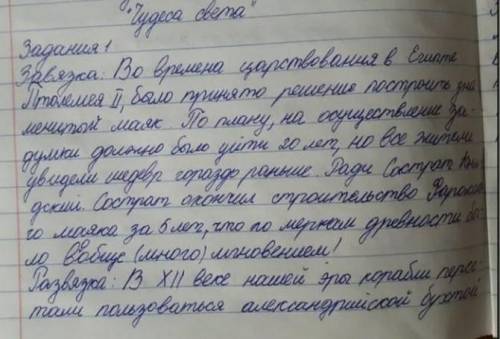 "Чудеса света"
Задания 1
Завязка: Во времена царствования в Египте
Птолемея II, было принято решение построить зна-
менитый маяк. По плану, на осуществление за-
думки должно было уйти 20 лет, но все жители
увидели шедевр гораздо раньше. Ради Сострат Кни-
дский. Сострат окончил строительство Фаросско-
го маяка за 5 лет, что по меркам древности бы-
ло вообще (много) мгновением!
Развязка: В XII веке нашей эры корабли перес-
тали пользоваться александрийской бухтой